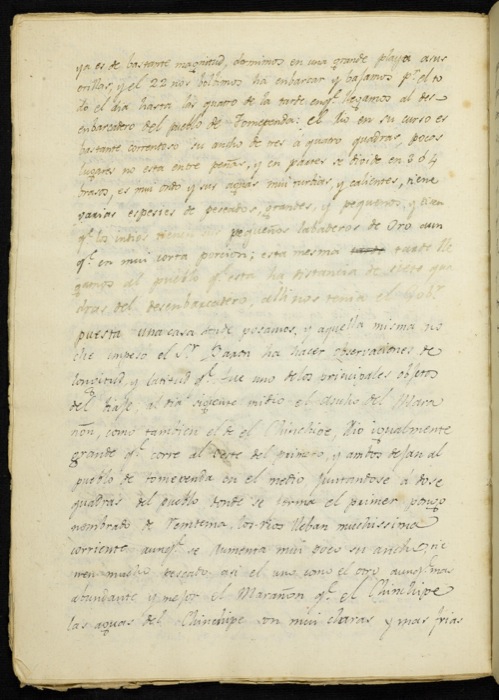 ya es de bastante magnitud, dormimos en una grande playa a sus
orillas, y el 22 nos bolbimos ha enbarcar y bajamos pr. el to
do el dia hasta las quatro de la tarde enqe. llegamos al des
enbarcadero del pueblo de Tomependa: el Rio en su curso es
bastante correntoso su ancho de tres a quatro quadras, pocos
lugares no esta entre peñas, y en partes se divide en 3 ó 4
brasos, es mui ondo y sus aguas mui turbias, y calientes, tiene
varias espesies de pescados, grandes, y pequenos, y
qe. los indios tienen sus pequeños labaderos de Oro aun
qe. en mui corta porcion; esta mesma tarde lle
gamos al pueblo qe. esta ha distancia de siete qua
dras del desembarcadero, alli nos tenia el Gobr.
puesta una casa donde posamos, y aquella misma no
che enpeso el Sr. Baron ha hacer observaciones de
longitud, y latitud qe. fue uno de los principales objetos
del biaje, al dia sigiente midio el Ancho del Mara
ñon, como tambien el de el Chinchipe, Rio igualmente
grande qe. corre al Veste del primero, y ambos dejan al
pueblo de tomependa en el medio juntandose á dose
quadras del pueblo donde se forma el primer pongo
nombrado de Rentema, los Rios lleban muchissima
corriente aunqe. se aumenta mui poco su ancho, tie
nen mucho pescado asi el uno como el otro aunqe. mas
abundante y mejor el Marañon qe. el Chinchipe
las aguas del Chinchipe son mui claras y mas frias